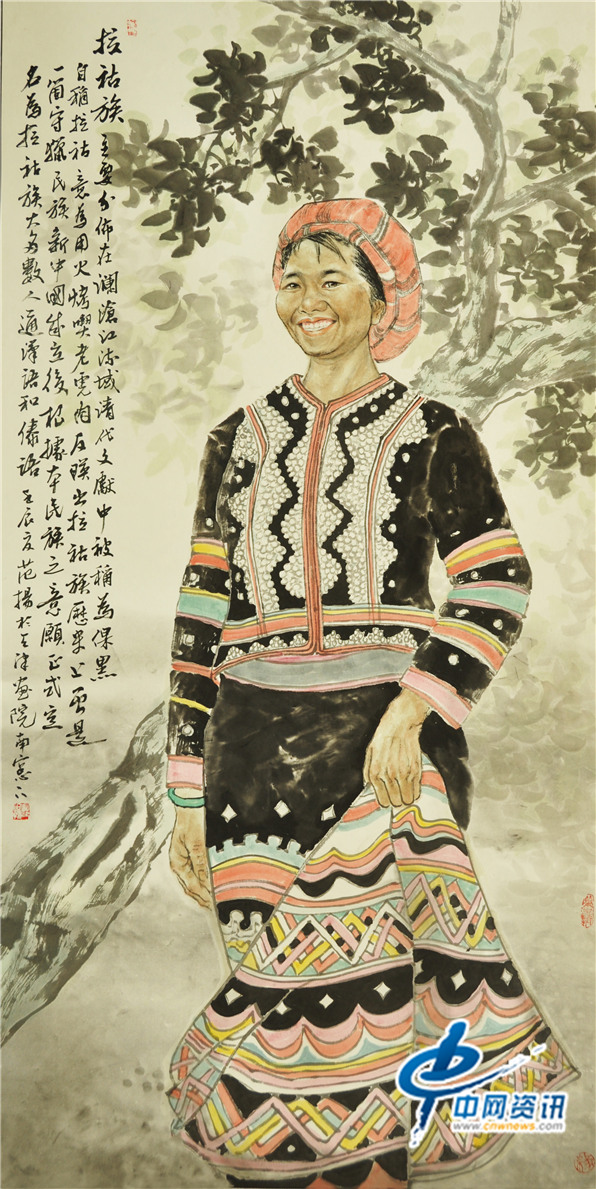 拉祜族主要分佈在瀾滄江流域清代文獻中被稱為倮黑
自稱拉祜意為用火燒喫老虎肉反映出拉祜族歷史上曾是
一箇守獵民族新中國成立後根據本民族之意願正式定
名為拉祜族大多數人通漢語和傣語 壬辰夏范揚於天津畫院南窓下
中网资讯
www.cnwnews.com